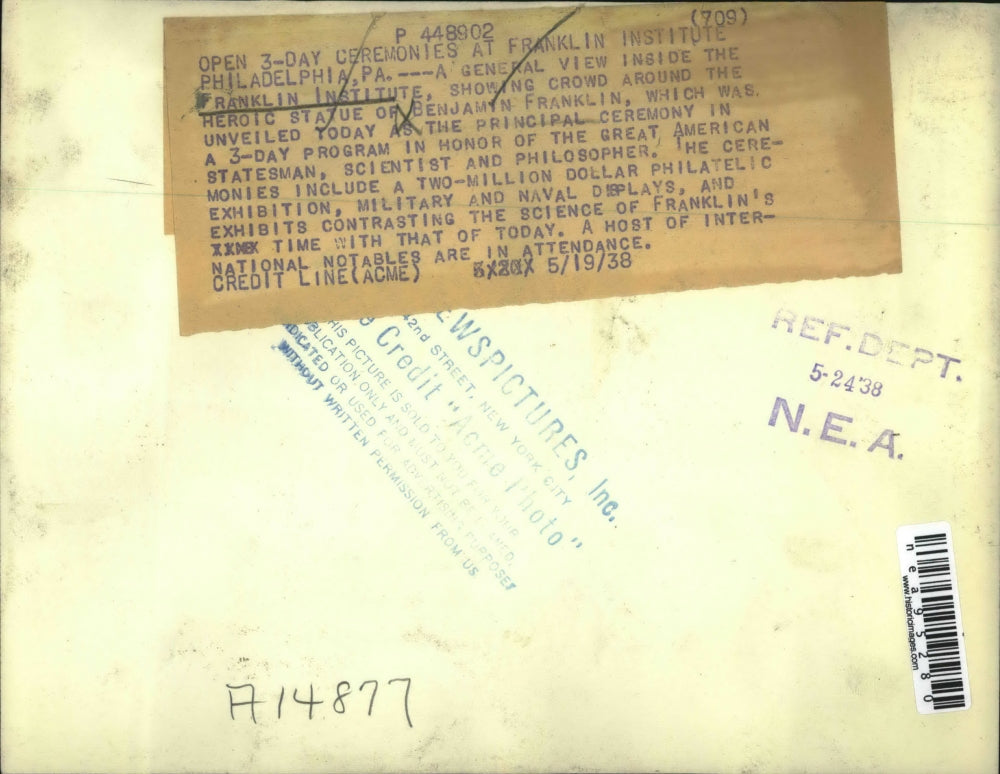 P 448902 (709)
OPEN 3-DAY CEREMONIES AT FRANKLIN INSTITUTE
PHILADELPHIA, PA.---A GENERAL VIEW INSIDE THE
FRANKLIN INSTITUTE, SHOWING CROWD AROUND THE
HEROIC STATUE OF BENJAMIN FRANKLIN, WHICH WAS.
UNVEILED TODAY AS THE PRINCIPAL CEREMONY IN
A 3-DAY PROGRAM IN HONOR OF THE GREAT AMERICAN
STATESMAN, SCIENTIST AND PHILOSOPHER. THE CERE-
MONIES INCLUDE A TWO-MILLION DOLLAR PHILATELIC
EXHIBITION, MILITARY AND NAVAL DISPLAYS, AND
EXHIBITS CONTRASTING THE SCIENCE OF FRANKLIN'S
TIME WITH THAT OF TODAY. A HOST OF INTER-
NATIONAL NOTABLES ARE IN ATTENDANCE.
CREDIT LINE(ACME) 5/19/38
EWSPICTURES, Inc.
42nd STREET, NEW YORK CITY
Credit "Acme Photo"
HIS PICTURE IS SOLD TO YOU FOR YOUR
BLICATION ONLY AND MUST NOT BE
OR USED FOR ADVERTISING PURPOSES
WITHOUT WRITTEN PERMISSION FROM US
REF. DEPT.
5-24'38
N.E.A.
nea95280
www.historicimages.com
A14877